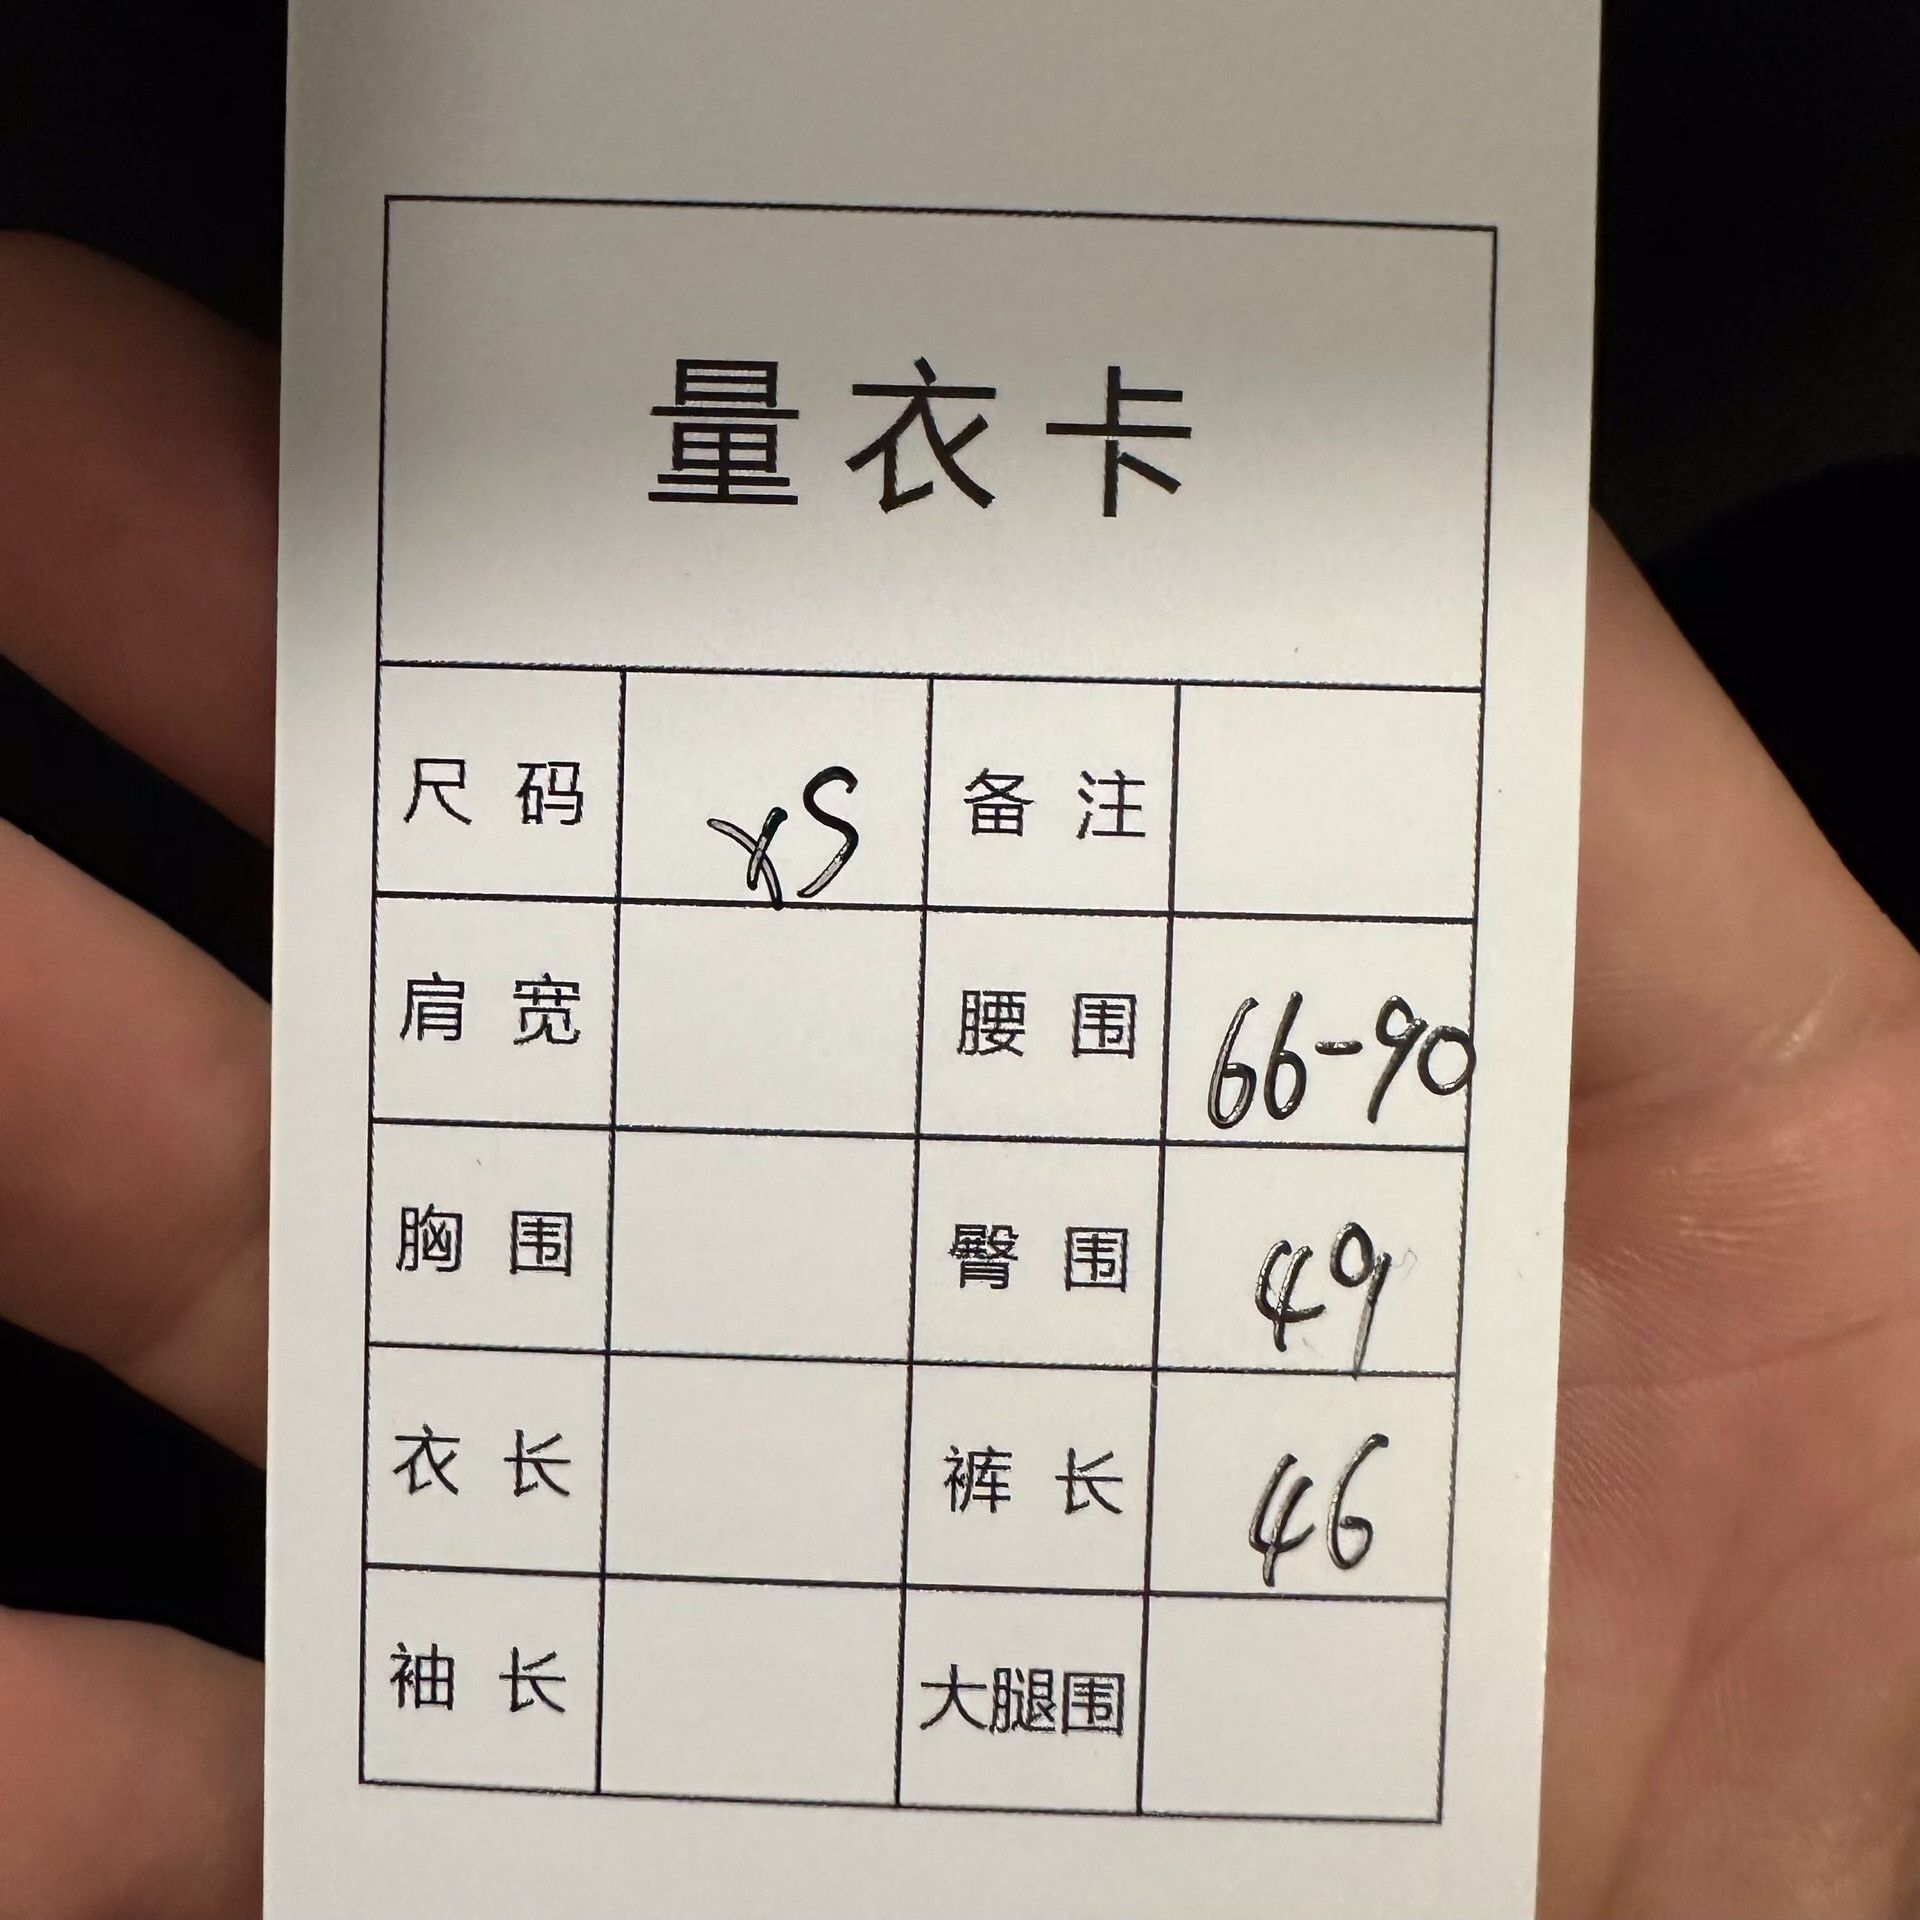 量衣卡
尺码 XS 备注
肩宽 腰围 66-90
胸围 臀围 49
衣长 裤长 46
袖长 大腿围